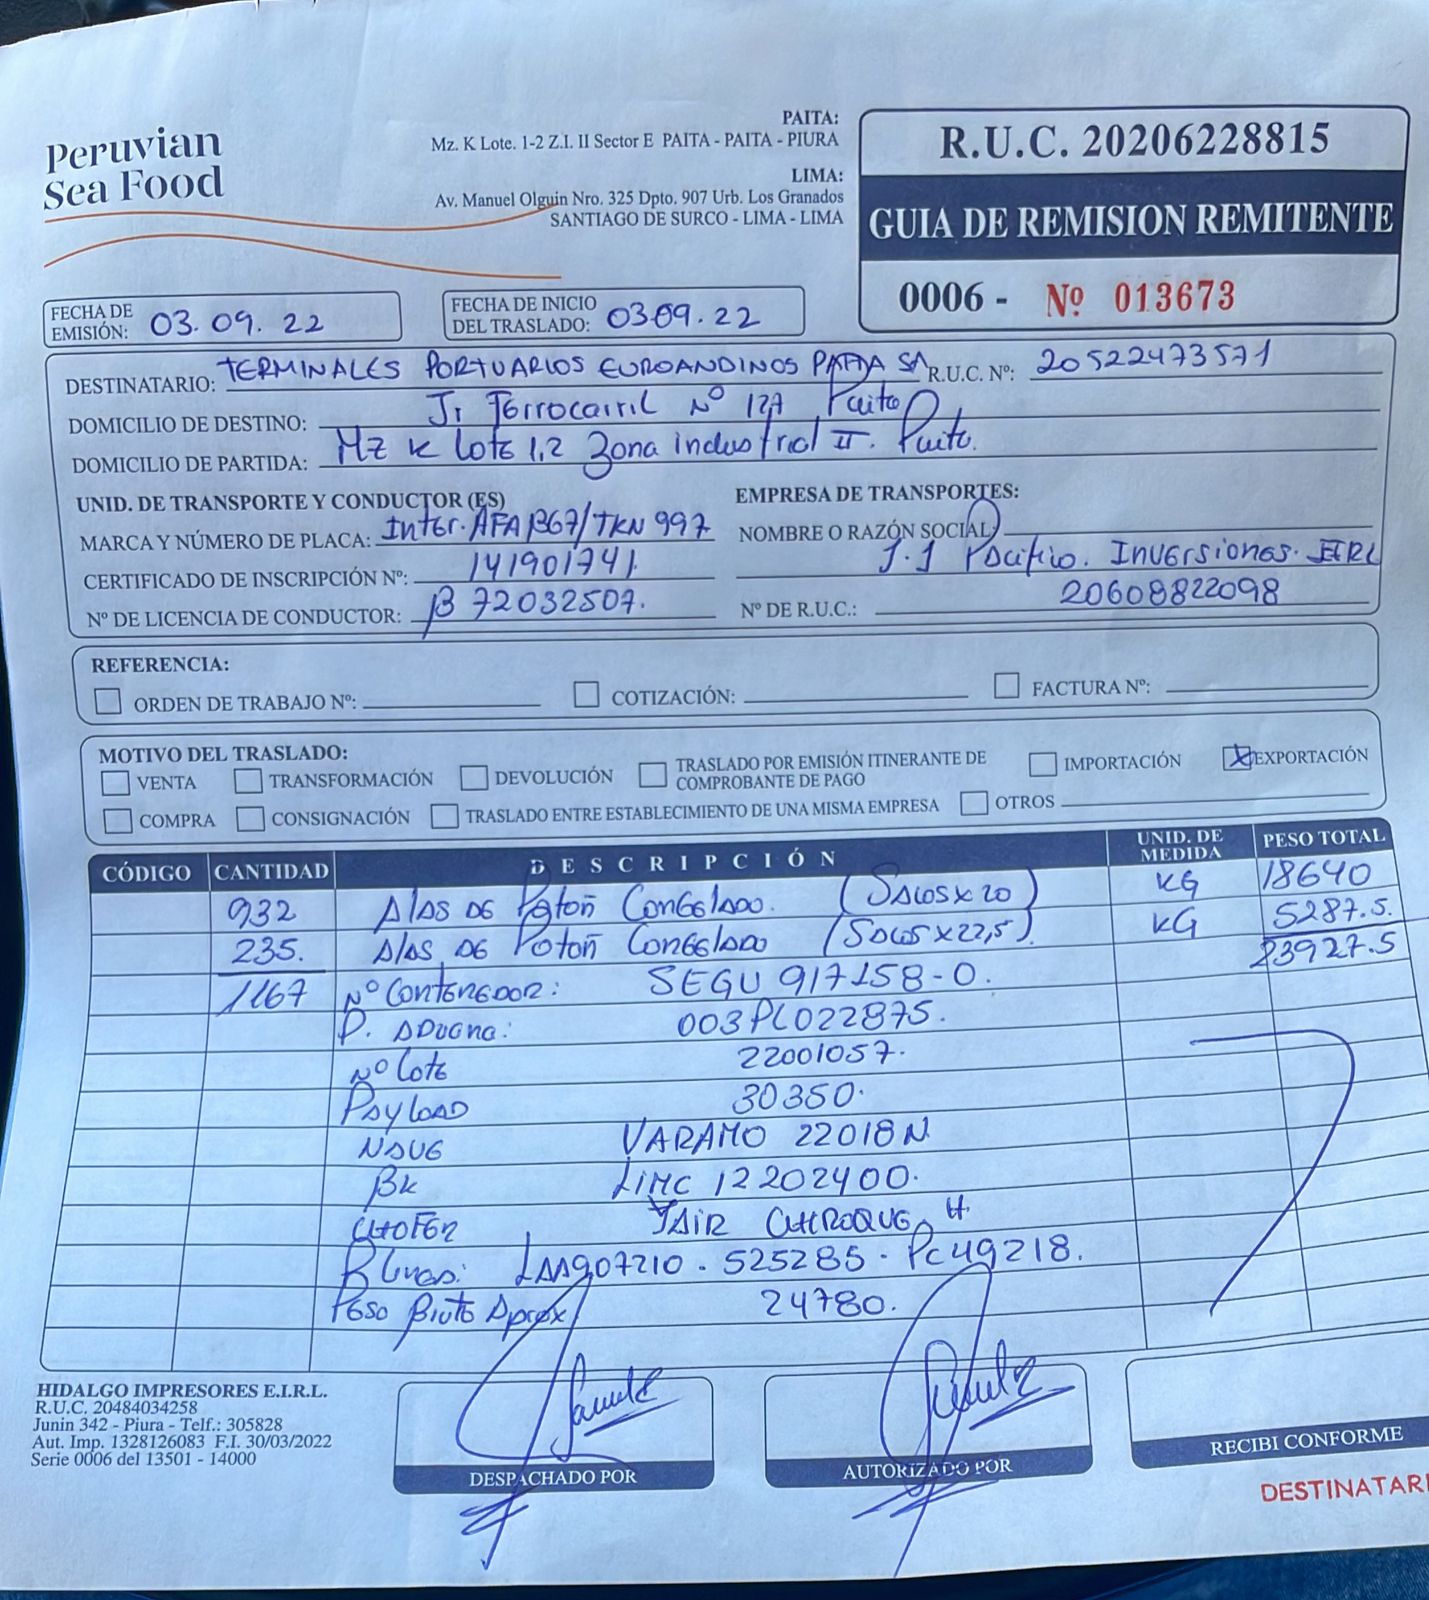 Peruvian
Sea Food
PAITA:
Mz. K Lote. 1-2 Z.I. II Sector E PAITA - PAITA - PIURA
LIMA:
Av. Manuel Olguin Nro. 325 Dpto. 907 Urb. Los Granados
SANTIAGO DE SURCO - LIMA - LIMA
R.U.C. 20206228815
GUIA DE REMISION REMITENTE
0006 - Nº 013673
FECHA DE EMISIÓN: 03.09.22
FECHA DE INICIO DEL TRASLADO: 0309.22
DESTINATARIO: TERMINALES PORTUARIOS EUROANDINOS PAITA SA R.U.C. Nº: 20522473571
DOMICILIO DE DESTINO: Jr Ferrocarril Nº 127 Paita
DOMICILIO DE PARTIDA: Mz K lote 1,2 Zona industrial II. Paita.
UNID. DE TRANSPORTE Y CONDUCTOR (ES)
MARCA Y NÚMERO DE PLACA: Inter. AFA 867/TKN 997
CERTIFICADO DE INSCRIPCIÓN Nº: 141901741.
Nº DE LICENCIA DE CONDUCTOR: B 72032507.
EMPRESA DE TRANSPORTES:
NOMBRE O RAZÓN SOCIAL:
J.J Pacifico. Inversiones. EIRL
Nº DE R.U.C.: 20608822098
REFERENCIA:
ORDEN DE TRABAJO Nº: COTIZACIÓN: FACTURA Nº:
MOTIVO DEL TRASLADO:
VENTA TRANSFORMACIÓN DEVOLUCIÓN TRASLADO POR EMISIÓN ITINERANTE DE COMPROBANTE DE PAGO IMPORTACIÓN X EXPORTACIÓN
COMPRA CONSIGNACIÓN TRASLADO ENTRE ESTABLECIMIENTO DE UNA MISMA EMPRESA OTROS
CÓDIGO CANTIDAD DESCRIPCIÓN UNID. DE MEDIDA PESO TOTAL
932 Alas de Potoñ Congelado. (Sacos x 20) KG 18640
235. Alas de Potoñ Congelado (Sacos x 22,5) KG 5287.5.
1167 Nº Contenedor: SEGU 917158-0. 23927.5
P. Aduana: 003PL022875.
Nº Lote 22001057.
Payload 30350.
Nave VARAMO 22018N
Bk LIMC 12202400.
CHOFER YAIR CHIROQUE H.
LAA907210. 525285. PC49218.
Peso Bruto Aprox 24780.
HIDALGO IMPRESORES E.I.R.L.
R.U.C. 20484034258
Junin 342 - Piura - Telf.: 305828
Aut. Imp. 1328126083 F.I. 30/03/2022
Serie 0006 del 13501 - 14000
DESPACHADO POR
AUTORIZADO POR
RECIBI CONFORME
DESTINATARI